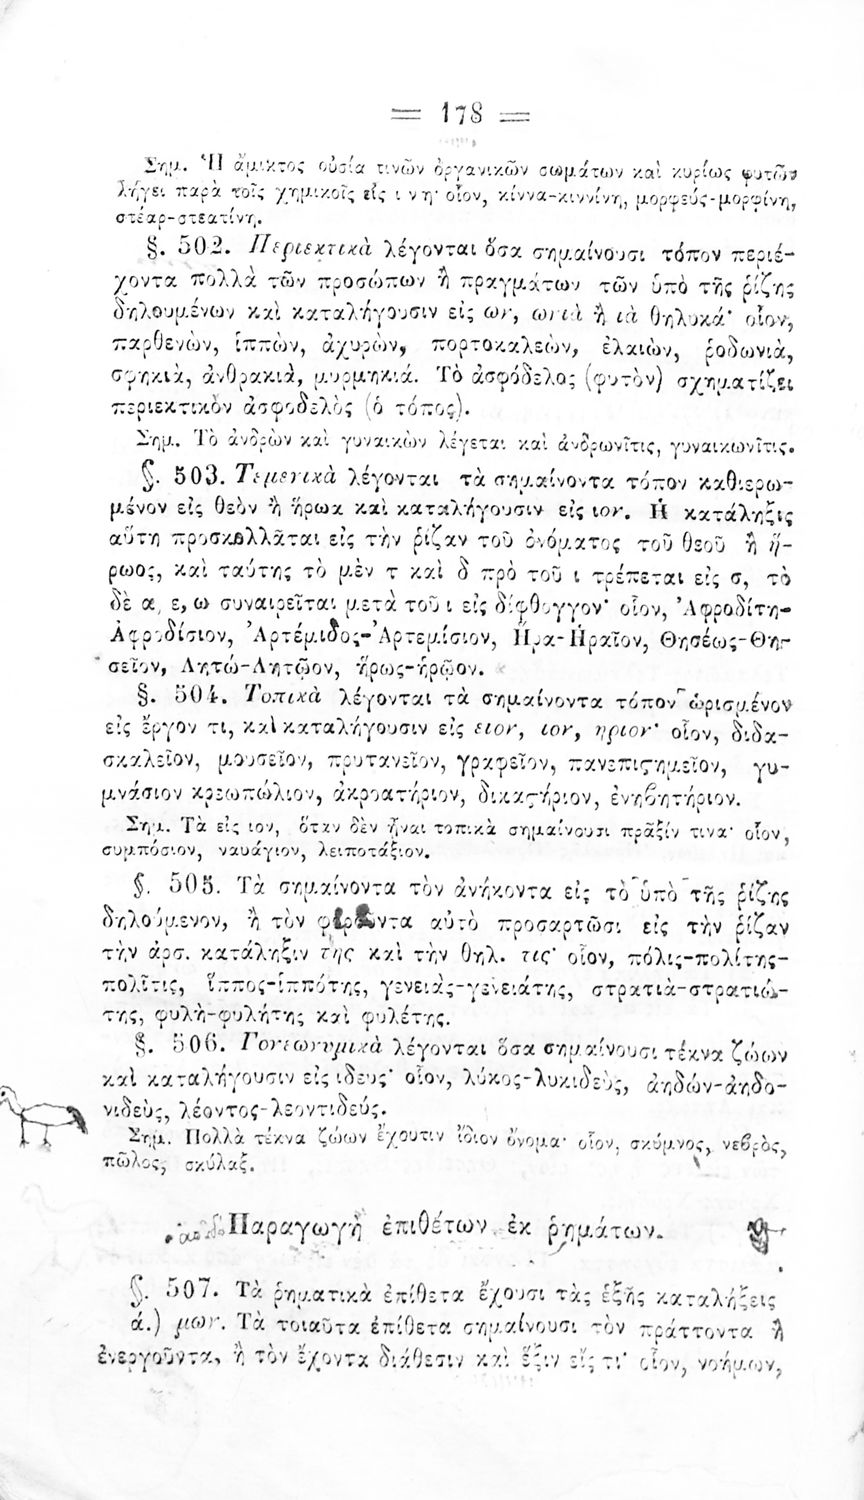 = 178 =
Σημ. Ἡ ἄμικτος οὐσία τινῶν ὀργανικῶν σωμάτων καὶ κυρίως φυτῶν
λήγει παρὰ τοῖς χημικοῖς εἰς ι ν η· οἷον, κίννα-κιννίνη, μορφεύς-μορφίνη,
στέαρ-στεατίνη.
§. 502. Περιεκτικὰ λέγονται ὅσα σημαίνουσι τόπον περιέ-
χοντα πολλὰ τῶν προσώπων ἢ πραγμάτων τῶν ὑπὸ τῆς ῥίζης
δηλουμένων καὶ καταλήγουσιν εἰς ων, ωνιὰ ἢ ιὰ θηλυκά· οἷον,
παρθενὼν, ἱππὼν, ἀχυρὼν, πορτοκαλεὼν, ἐλαιὼν, ῥοδωνιὰ,
σφηκιὰ, ἀνθρακιὰ, μυρμηκιά. Τὸ ἀσφόδελος (φυτὸν) σχηματίζει
περιεκτικὸν ἀσφοδελὸς (ὁ τόπος).
Σημ. Τὸ ἀνδρὼν καὶ γυναικὼν λέγεται καὶ ἀνδρωνῖτις, γυναικωνῖτις.
§. 503. Τεμενικὰ λέγονται τὰ σημαίνοντα τόπον καθιερω-
μένον εἰς θεὸν ἢ ἥρωα καὶ καταλήγουσιν εἰς ιον. Ἡ κατάληξις
αὕτη προσκολλᾶται εἰς τὴν ῥίζαν τοῦ ὀνόματος τοῦ θεοῦ ἢ ἥ-
ρωος, καὶ ταύτης τὸ μὲν τ καὶ δ πρὸ τοῦ ι τρέπεται εἰς σ, τὸ
δὲ α, ε, ω συναιρεῖται μετὰ τοῦ ι εἰς δίφθογγον· οἷον, Ἀφροδίτη-
Ἀφροδίσιον, Ἀρτέμιδος-Ἀρτεμίσιον, Ἥρα-Ἡραῖον, Θησέως-Θη-
σεῖον, Λητώ-Λητῷον, ἥρως-ἡρῷον.
§. 504. Τοπικὰ λέγονται τὰ σημαίνοντα τόπον ὡρισμένον
εἰς ἔργον τι, καὶ καταλήγουσιν εἰς ειον, ιον, ηριον· οἷον, διδα-
σκαλεῖον, μουσεῖον, πρυτανεῖον, γραφεῖον, πανεπιϛημεῖον, γυ-
μνάσιον κρεωπώλιον, ἀκροατήριον, δικαϛήριον, ἐνηβητήριον.
Σημ. Τὰ εἰς ιον, ὅταν δὲν ἦναι τοπικὰ σημαίνουσι πρᾶξίν τινα· οἷον,
συμπόσιον, ναυάγιον, λειποτάξιον.
§. 505. Τὰ σημαίνοντα τὸν ἀνήκοντα εἰς τὸ ὑπὸ τῆς ῥίζης
δηλούμενον, ἢ τὸν φέροντα αὐτὸ προσαρτῶσι εἰς τὴν ῥίζαν
τὴν ἀρσ. κατάληξιν της καὶ τὴν θηλ. τις· οἷον, πόλις-πολίτης-
πολῖτις, ἵππος-ἱππότης, γενειὰς-γενειάτης, στρατιὰ-στρατιώ-
της, φυλὴ-φυλήτης καὶ φυλέτης.
§. 506. Γονεωνυμικὰ λέγονται ὅσα σημαίνουσι τέκνα ζώων
καὶ καταλήγουσιν εἰς ιδευς· οἷον, λύκος-λυκιδεὺς, ἀηδών-ἀηδο-
νιδεὺς, λέοντος-λεοντιδεύς.
Σημ. Πολλὰ τέκνα ζώων ἔχουσιν ἴδιον ὄνομα· οἷον, σκύμνος, νεβρὸς,
πῶλος, σκύλαξ.
Παραγωγὴ ἐπιθέτων ἐκ ῥημάτων.
§. 507. Τὰ ῥηματικὰ ἐπίθετα ἔχουσι τὰς ἑξῆς καταλήξεις
ά.) μων. Τὰ τοιαῦτα ἐπίθετα σημαίνουσι τὸν πράττοντα ἢ
ἐνεργοῦντα, ἢ τὸν ἔχοντα διάθεσιν καὶ ἕξιν εἴς τι· οἷον, νοήμων,